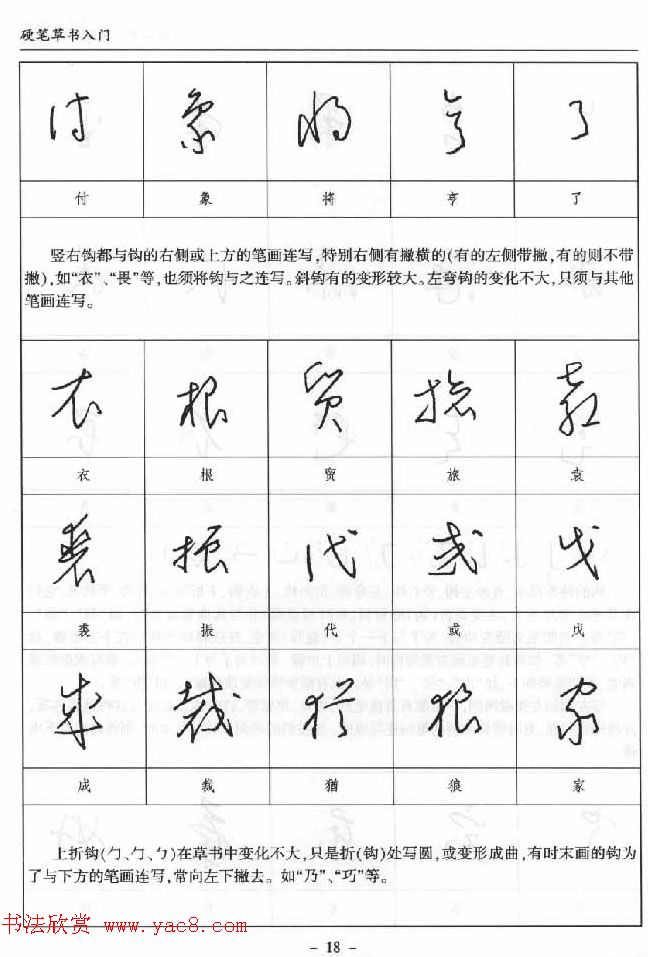 硬笔草书入门
付 象 将 亨 了
付 象 将 亨 了
竖右钩都与钩的右侧或上方的笔画连写,特别右侧有撇横的(有的左侧带撇,有的则不带
撇),如“衣”、“畏”等,也须将钩与之连写。斜钩有的变形较大。左弯钩的变化不大,只须与其他
笔画连写。
衣 根 贸 旅 袁
衣 根 贸 旅 袁
裘 振 代 或 戊
裘 振 代 或 戊
成 裁 猶 狼 家
成 裁 猶 狼 家
上折钩(㇆、勹、ㄅ)在草书中变化不大,只是折(钩)处写圆,或变形成曲,有时末画的钩为
了与下方的笔画连写,常向左下撇去。如“乃”、“巧”等。
书法欣赏 www.yac8.com
- 18 -